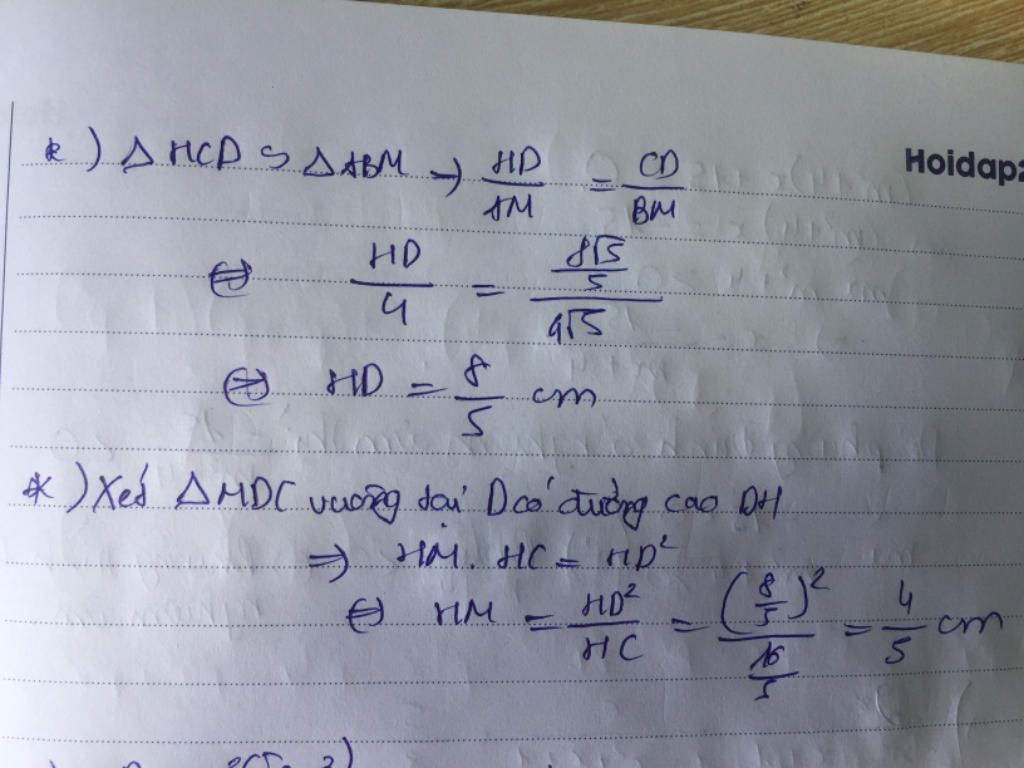 *) △HCD ∽ △ABM → HD/AM = CD/BM
Hoidap2
⇔ HD/4 = (8√5/5)/(4√5)
⇔ HD = 8/5 cm
*) Xét △MDC vuông tại D có đường cao DH
⇒ HM. HC = HD²
⇔ HM = HD²/HC = (8/5)²/(16/5) = 4/5 cm